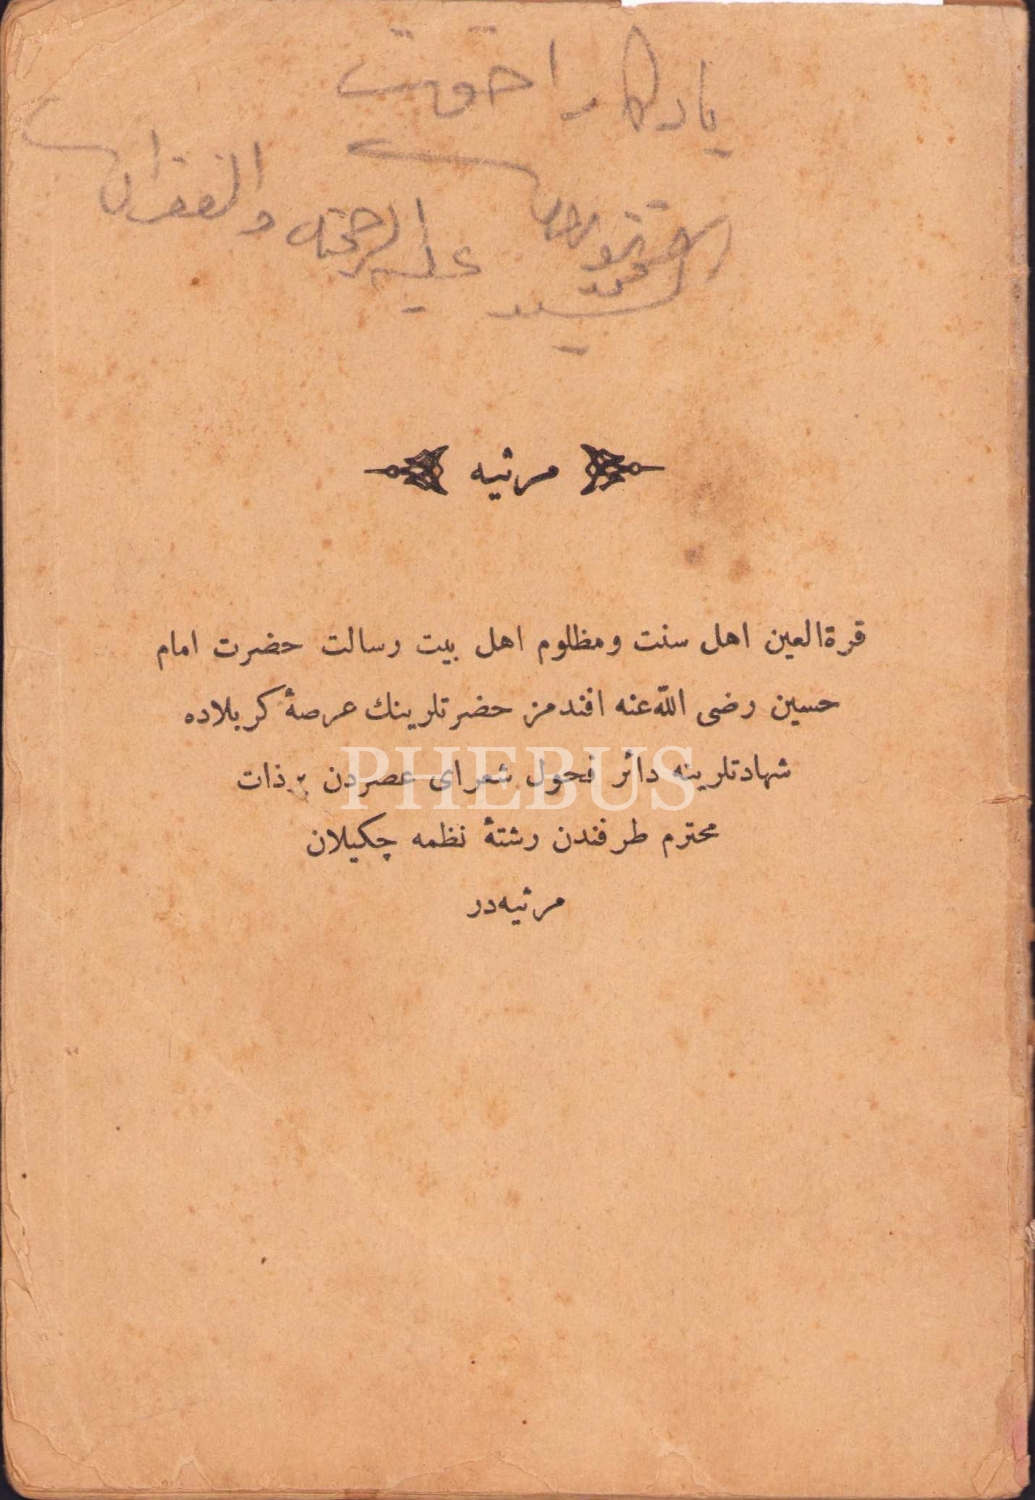 يادكار اخوت
عليه الرحمة والغفران
مرثيه
قرةالعين اهل سنت ومظلوم اهل بيت رسالت حضرت امام
حسين رضى الله عنه افندمز حضرتلرينك عرصۀ كربلاده
شهادتلرينه دائر فحول شعراى عصردن بر ذات
PHEBUS
محترم طرفندن رشتۀ نظمه چكيلان
مرثيه‌در